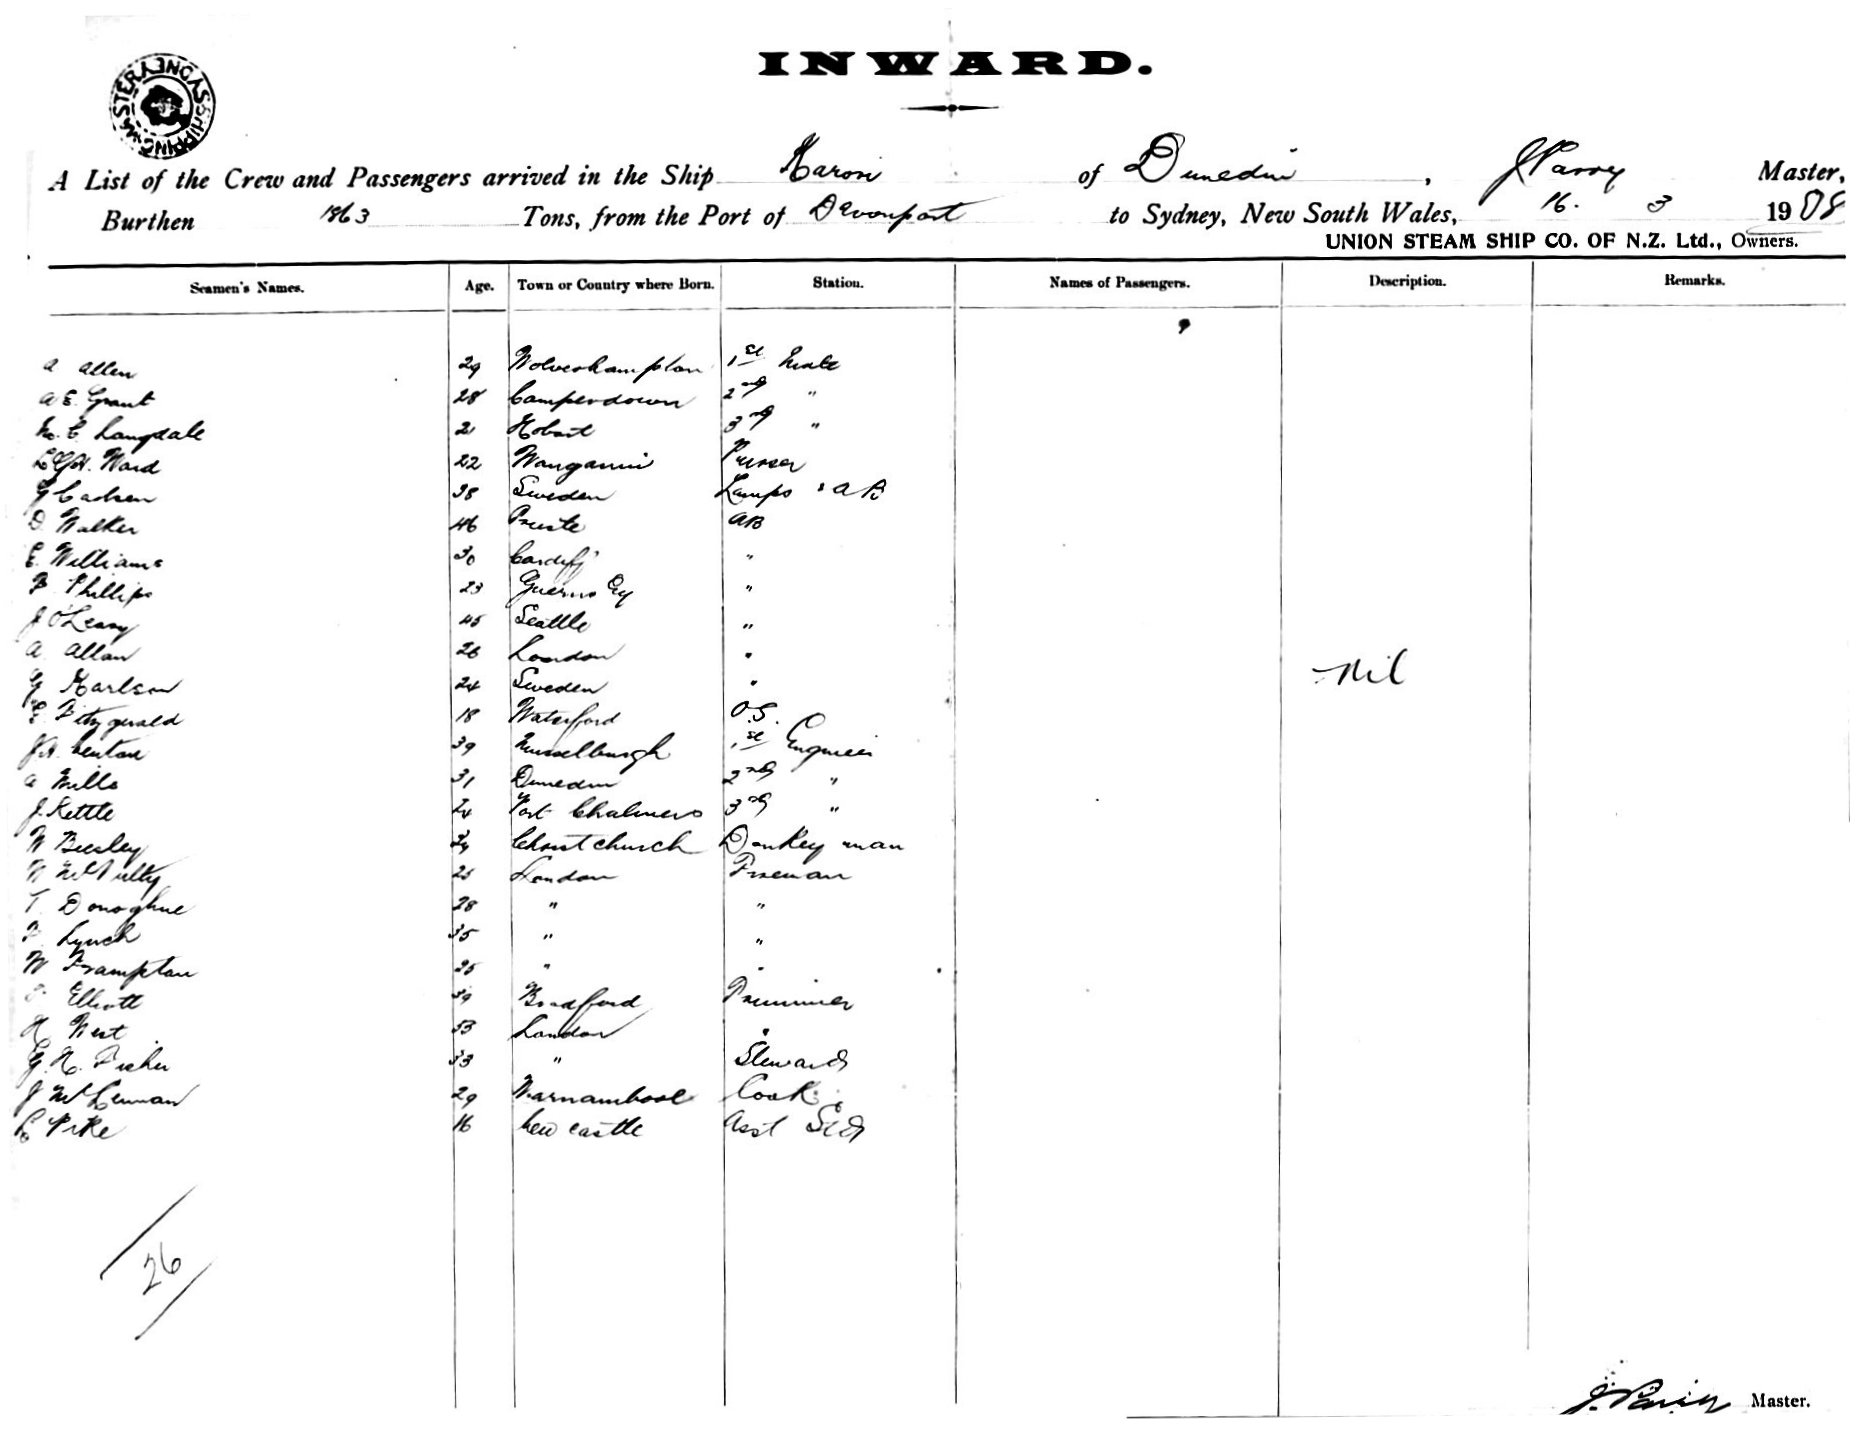 SHIPPING MASTER SYDNEY
INWARD.
A List of the Crew and Passengers arrived in the Ship Karori of Dunedin, J Parry Master,
Burthen 1863 Tons, from the Port of Devonport to Sydney, New South Wales, 16. 3 1908
UNION STEAM SHIP CO. OF N.Z. Ltd., Owners.
Seamen's Names. Age. Town or Country where Born. Station. Names of Passengers. Description. Remarks.
A Allen 29 Wolverhampton 1st Mate
A E. Grant 28 Camperdown 2nd "
C. Langdale 21 Hobart 3rd "
Ward 22 Wanganui Purser
G Carlsen 38 Sweden Lamps & AB
D. Walker 46 AB
E. Williams 30 Cardiff "
P. Phillips 23 Guernsey "
J O'Leary 45 Seattle "
A. Allan 26 London "
G Karlson 24 Sweden "
Nil
E. Fitzgerald 18 Waterford O.S.
39 Musselburgh 1st Engineer
A Mills 31 Dunedin 2nd "
J. Kettle 24 Port Chalmers 3rd "
W Beesley 34 Christchurch Donkeyman
W McNulty 25 London Fireman
T. Donoghue 28 " "
P. Lynch 35 " "
W Frampton 25 " "
Elliott 39 Bradford Trimmer
H West 33 London "
G. H. Fisher 33 " Steward
J McLennan 29 Warnambool Cook
L Pike 16 New castle Asst Std
26
J. Parry Master.